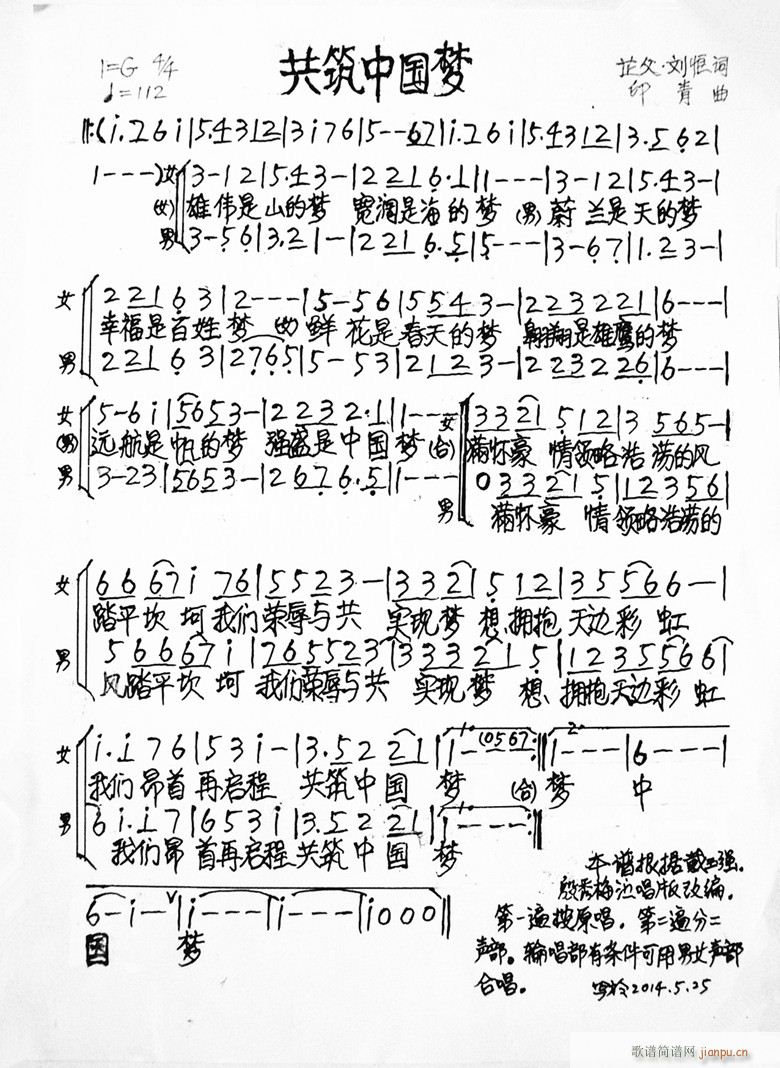 共筑中国梦
1=G 4/4
♩=112
芷父·刘恒词
印青曲
‖:(i.7 6 i|5.4 3 1 2|3 i 7 6|5 - - 6 7|i.7 6 i|5.4 3 1 2|3.5 6 2|
1 - - -)女 3 - 1 2|5.4 3 -|2 2 1 6.1|1 - - -|3 - 1 2|5.4 3 -|
(女)雄伟是山的梦 宽阔是海的梦 (男)蔚兰是天的梦
男 3 - 5 6|3.2 1 -|2 2 1 6.5|5 - - -|3 - 6 7|1.2 3 -|
女 2 2 1 6 3|2 - - -|5 - 5 6|5 5 4 3 -|2 2 3 2 2 1|6 - - -|
幸福是百姓梦 (女)鲜花是春天的梦 翱翔是雄鹰的梦
男 2 2 1 6 3|2 7 6 5|5 - 5 3|2 1 2 3 -|2 2 3 2 2 6|6 - - -|
女 5 - 6 i|5 6 5 3 -|2 2 3 2.1|1 - - -|女 3 3 2 1 5 1 2|3 5 6 5 -|
(男)远航是帆的梦 强盛是中国梦 (合)满怀豪情领略浩荡的风
男 3 - 2 3|5 6 5 3 -|2 6 7 6.5|1 - - -|男 0 3 3 2 1 5|1 2 3 5 6|
满怀豪情领略浩荡的
女 6 6 6 7 i 7 6|5 5 2 3 -|3 3 2 5 1 2|3 5 5 6 6 -|
踏平坎坷我们荣辱与共 实现梦想拥抱天边彩虹
男 5 6 6 6 7 i|7 6 5 5 2 3|3 3 3 2 1 5|1 2 3 5 5 6 6|
风踏平坎坷我们荣辱与共 实现梦想、拥抱天边彩虹
女 i.i 7 6|5 3 i -|3.5 2 2 2 1|1. 1 - (0 5 6 7:‖2. 1 - - -|6 - - -|
我们昂首再启程 共筑中国梦 (合)梦 中
男 6 i.i 7|6 5 3 i|3.5 2 2 2 1|1. 1 - - -:‖
我们昂首再启程共筑中国梦
6 - i - ∨|i - - -|i - - -|i 0 0 0‖
国 梦
本谱根据戴玉强.
殷秀梅边唱版改编.
第一遍按原唱. 第二遍分二
声部。轮唱部有条件可用男女声部
合唱。
2014.5.25
歌谱简谱网 jianpu.cn